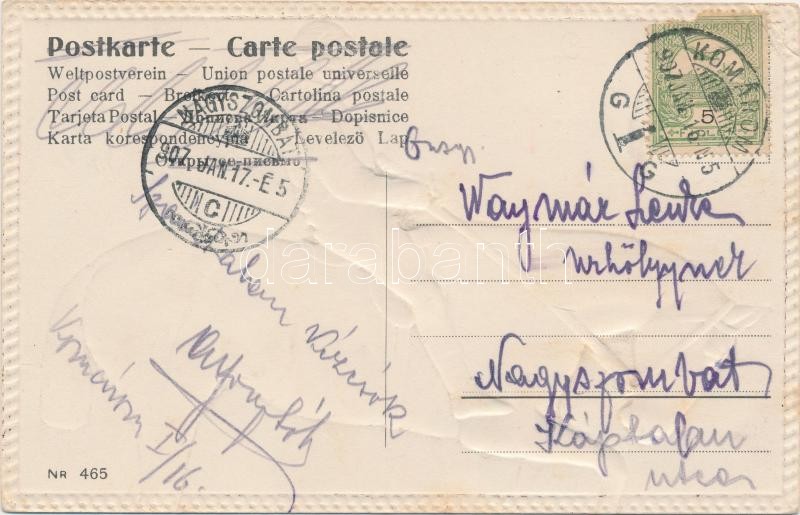 Postkarte — Carte postale
Weltpostverein — Union postale universelle
Post card — Brefkarte — Cartolina postale
Tarjeta Postal — Дописница — Dopisnice
Karta korespondencyjna — Levelező Lap
Открытое письмо
NAGYSZOMBAT
907 JAN. 17.-E 5
C
KOMÁROM
907 JAN. 16. N 5
G I G
5
Waymár Lenke
urhölgynek
Nagyszombat
Káptalan
utca
kézcsók
Komárom
I/16.
NR 465
darabanth